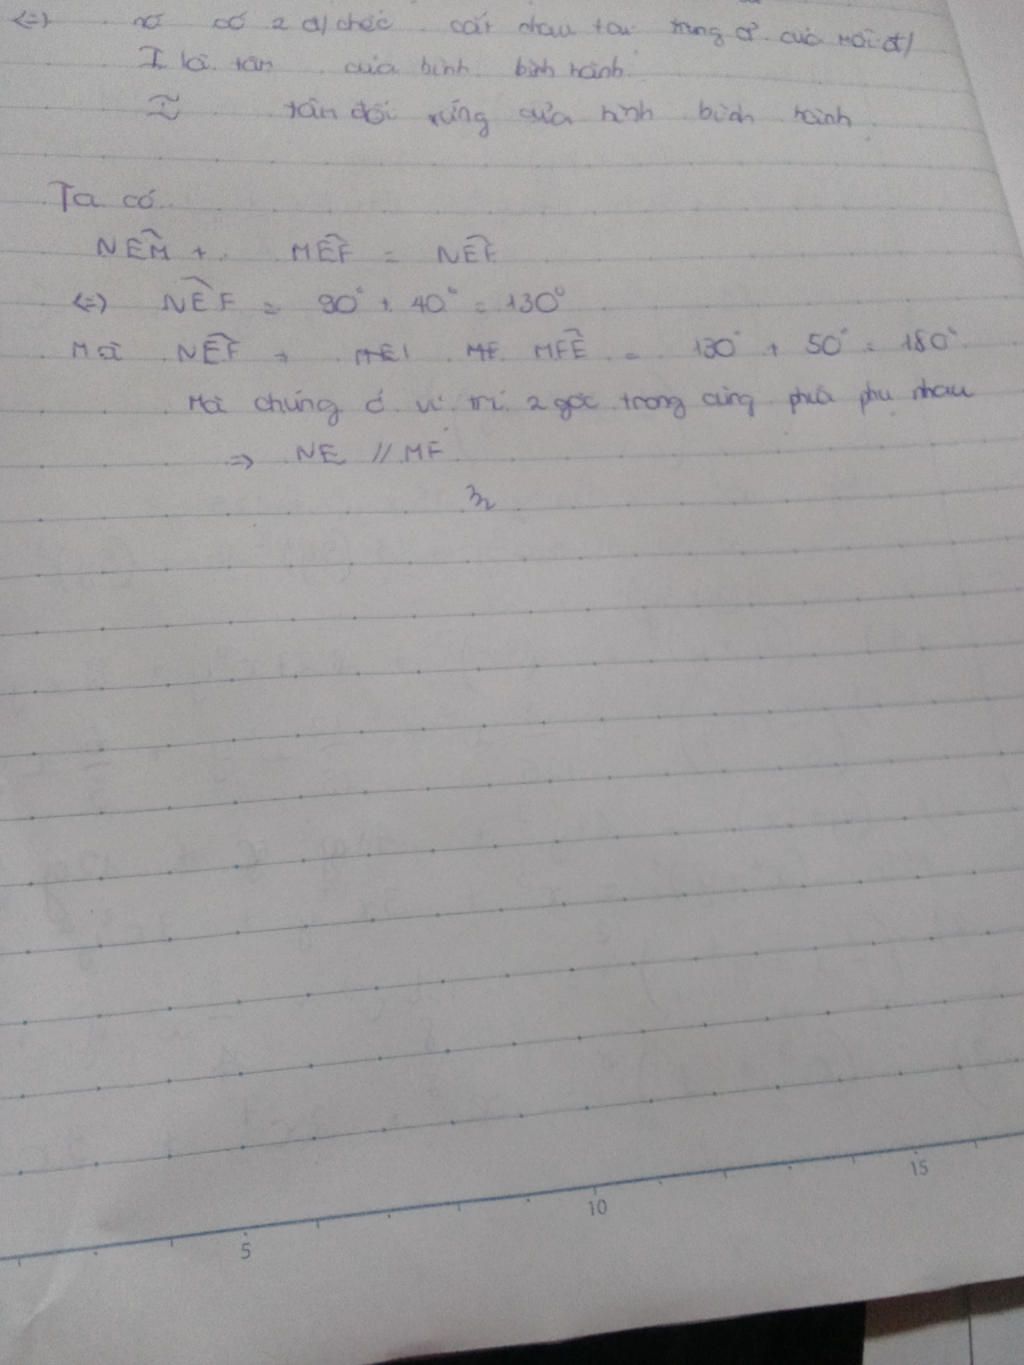 (=) nó có 2 đ/chéo cắt nhau tại trung đ' của mỗi đ/
I là tâm của bình bình hành.
tâm đối xứng của hình bình hành
Ta có
NÊM + MÊF = NÊF
(=) NÊF = 90° + 40° = 130°
Mà NÊF + MFE = 130° + 50° = 180°
Mà chúng ở vị trí 2 góc trong cùng phía phụ nhau
=> NE // MF
5
10
15